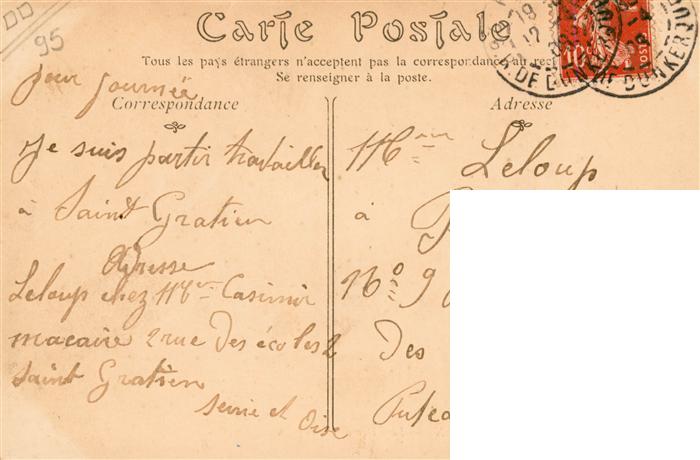 DD
95
Carte Postale
Tous les pays étrangers n'acceptent pas la correspondance au rect
Se renseigner à la poste.
pour journée
Correspondance
Je suis partir travailler
à Saint Gratien
Adresse
Leloup chez Mr Casimir
macaire 2 rue Des écoles 2
Saint Gratien
Seine et Oise
Adresse
Leloup
à
No 9
Des
Putea
10
POSTE
R. DE DUNKERQUE
R. DE DUNKERQU